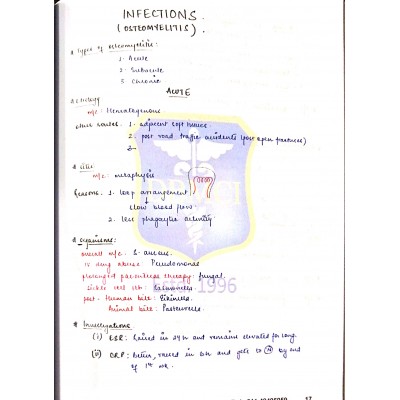 INFECTIONS
(OSTEOMYELITIS).
* Types of osteomyelitis:
1. Acute
2. Subacute
3. Chronic
ACUTE
* Etiology
m/c: Hematogenous
other routes: 1. adjacent soft tissue
2. post road traffic accidents (post open fractures)
3-
* Site
m/c: metaphysis
Reasons: 1. loop arrangement
slow blood flow
2. less phagocytic activity
* Organisms:
overall m/c: S. aureus
IV drug abuse: Pseudomonas
prolonged parenteral therapy: fungal
Sickle cell dis: Salmonella
post- Human bite: Eikinella
Animal bite: Pasteurella
1996
* Investigations
(i) ESR: Raised in 24h and remains elevated for long.
(ii) CRP: better, raised in 6h and gets to N by end
of 1st wk.
17